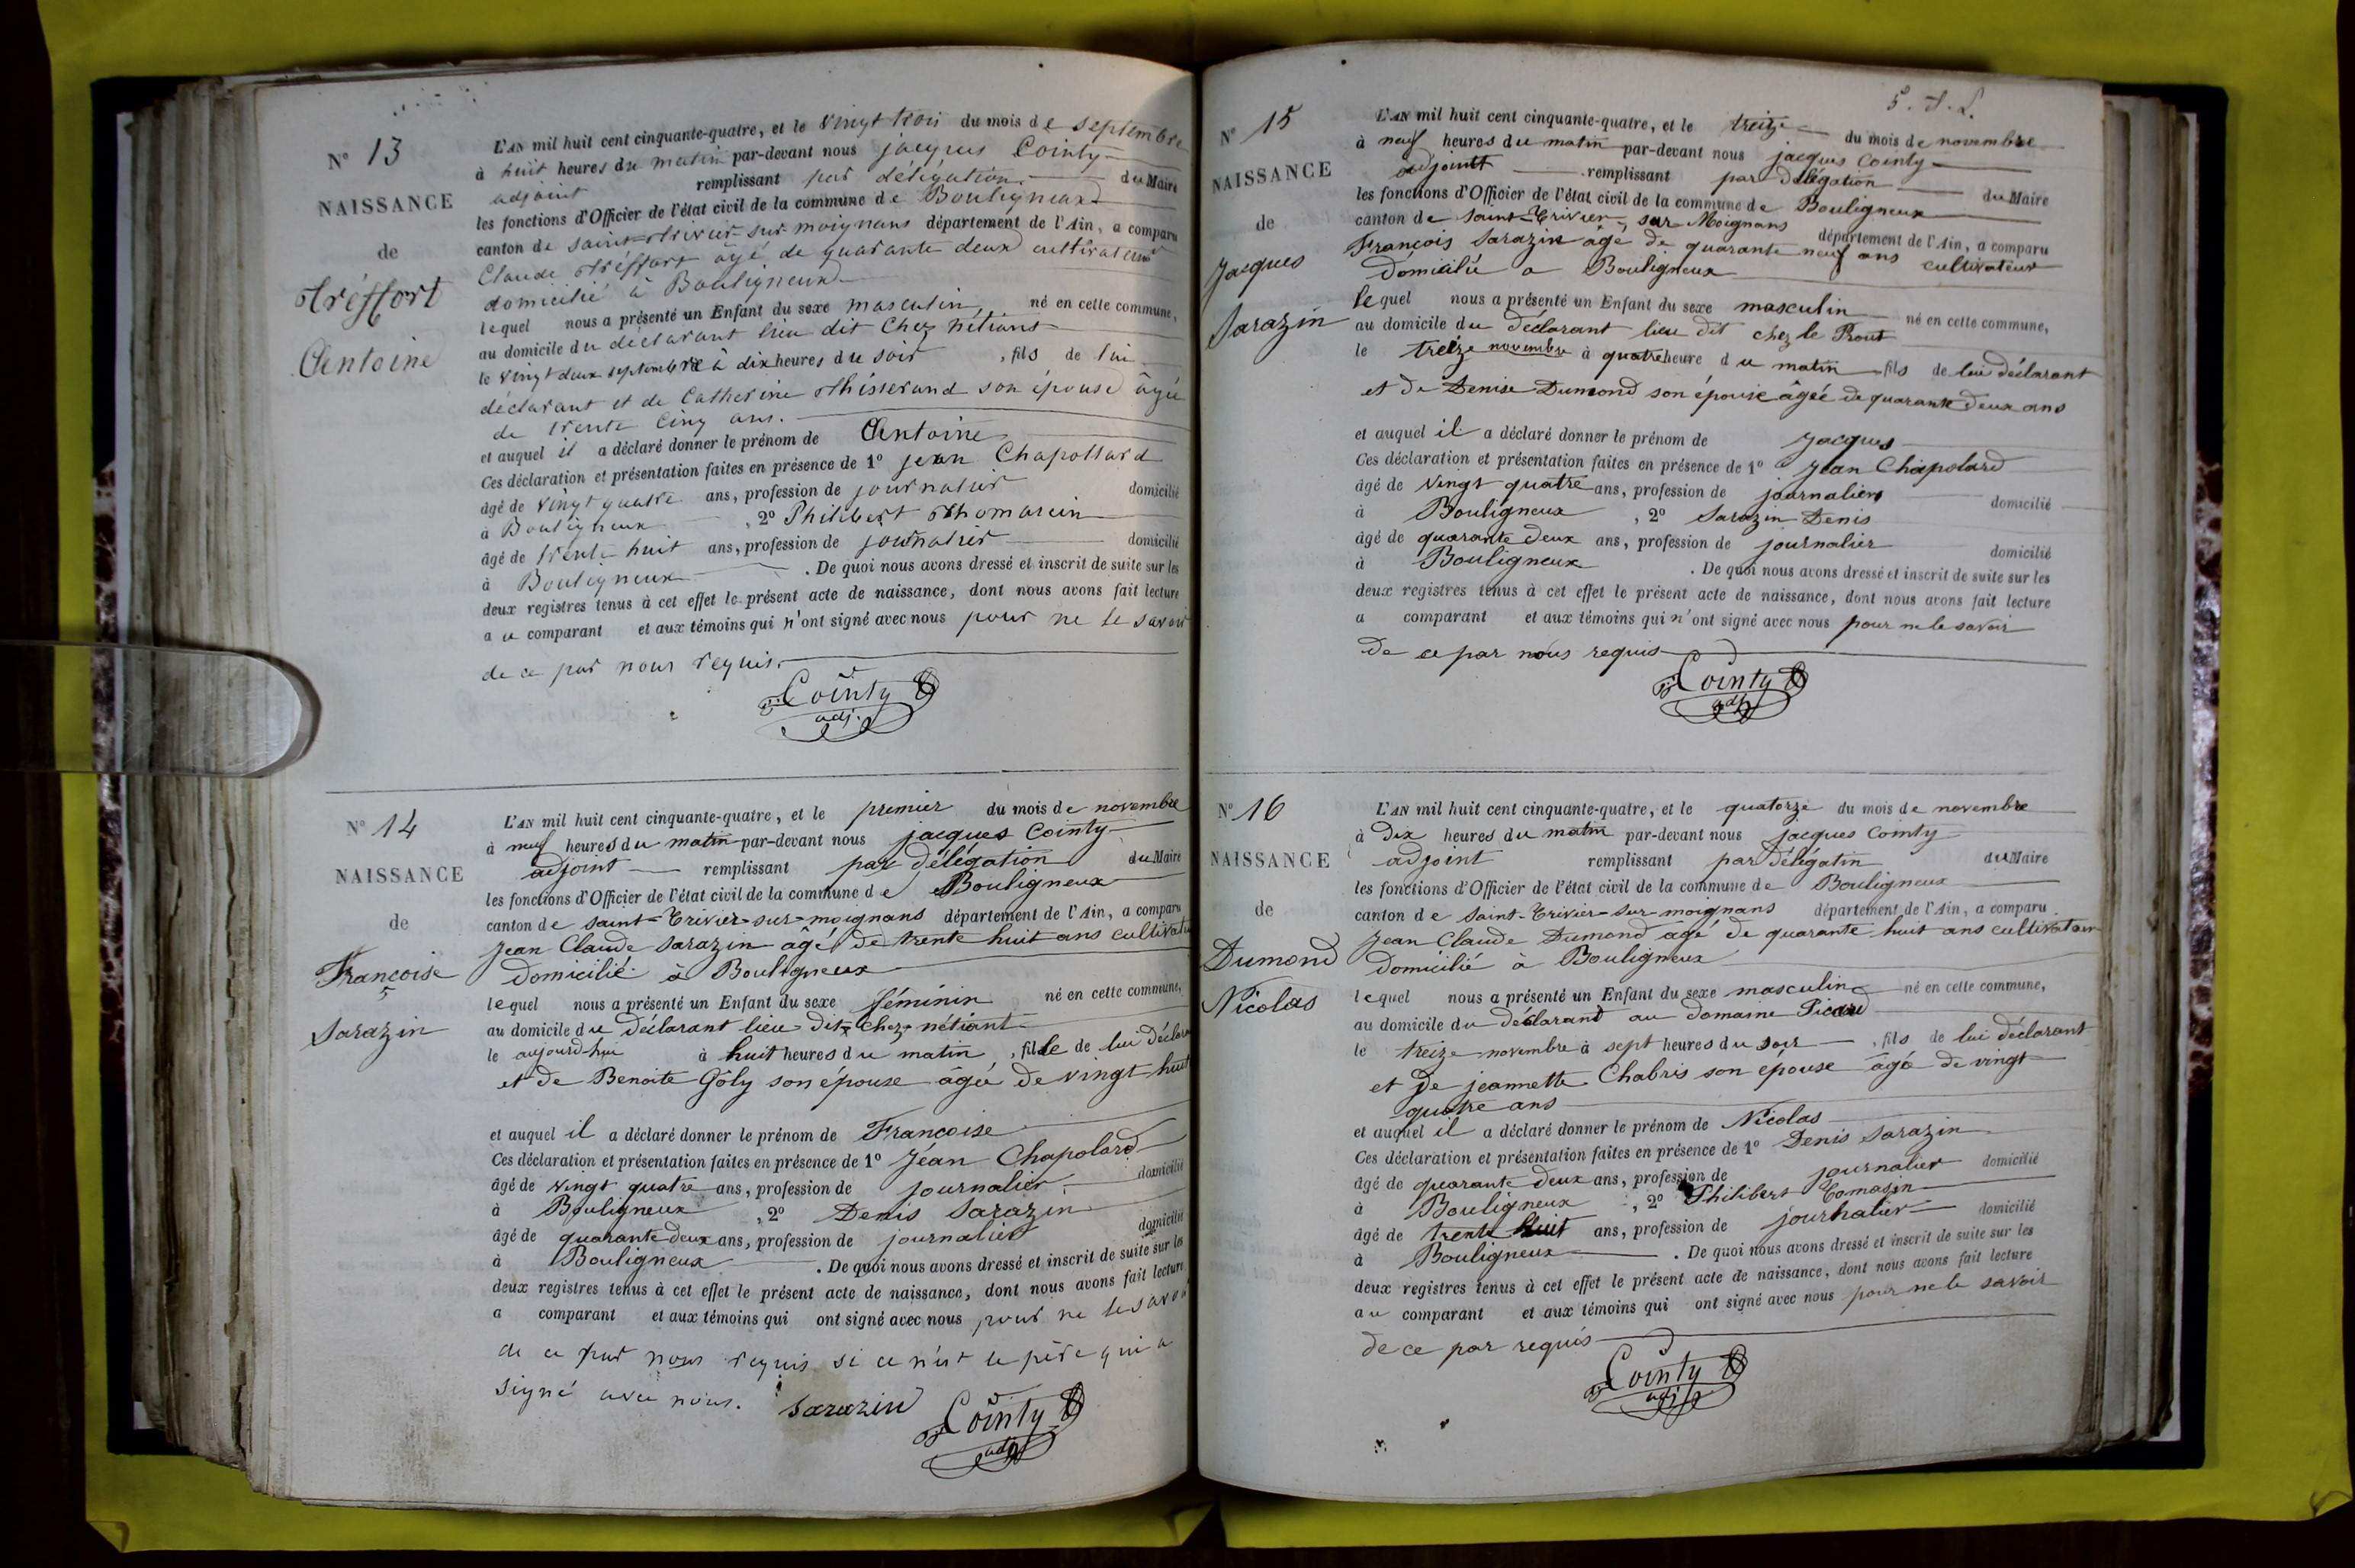 N° 13
NAISSANCE
de
Tréffort
Antoine
L'AN mil huit cent cinquante-quatre, et le vingt trois du mois de septembre
à huit heures du matin par-devant nous jacques Cointy
adjoint remplissant par délégation du Maire
les fonctions d'Officier de l'état civil de la commune de Bouligneux
canton de saint-trivier-sur-moignans département de l'Ain, a comparu
Claude Tréffort âgé de quarante deux cultivateur
domicilié à Bouligneux
lequel nous a présenté un Enfant du sexe masculin, né en cette commune,
au domicile du déclarant lieu dit Chez nétians
le vingt deux septembre à dix heures du soir, fils de lui
déclarant et de Catherine Thisserand son épouse âgée
de trente cinq ans.
et auquel il a déclaré donner le prénom de Antoine
Ces déclaration et présentation faites en présence de 1° jean Chapollard
âgé de vingt quatre ans, profession de journalier domicilié
à Bouligneux, 2° Philibert Thomarin
âgé de trente huit ans, profession de journalier domicilié
à Bouligneux. De quoi nous avons dressé et inscrit de suite sur les
deux registres tenus à cet effet le présent acte de naissance, dont nous avons fait lecture
au comparant et aux témoins qui n'ont signé avec nous pour ne le savoir
de ce par nous requis.
Cointy
adj.
N° 14
NAISSANCE
de
Francoise
Sarazin
L'AN mil huit cent cinquante-quatre, et le premier du mois de novembre
à neuf heures du matin par-devant nous jacques Cointy
adjoint remplissant par délégation du Maire
les fonctions d'Officier de l'état civil de la commune de Bouligneux
canton de saint-Trivier-sur-moignans département de l'Ain, a comparu
Jean Claude Sarazin âgé de trente huit ans cultivate
domicilié à Bouligneux
lequel nous a présenté un Enfant du sexe féminin né en cette commune,
au domicile du déclarant lieu dit chez nétiant
le aujourd-hui à huit heures du matin, fille de lui déclara
et de Benoite Goly son épouse âgée de vingt huit
et auquel il a déclaré donner le prénom de Francoise
Ces déclaration et présentation faites en présence de 1° Jéan Chapolard
âgé de vingt quatre ans, profession de journalier, domicilié
à Bouligneux, 2° Denis Sarazin
âgé de quarante deux ans, profession de journalier domicilié
à Bouligneux. De quoi nous avons dressé et inscrit de suite sur les
deux registres tenus à cet effet le présent acte de naissance, dont nous avons fait lecture
a comparant et aux témoins qui ont signé avec nous pour ne le savoi
de ce par nous requis si ce n'est le père qui a
signé avec nous. Sarazin Cointy
adj
5. T. L.
N° 15
NAISSANCE
de
Jacques
Sarazin
L'AN mil huit cent cinquante-quatre, et le treize du mois de novembre
à neuf heures du matin par-devant nous jacques Cointy
adjoint remplissant par délégation du Maire
les fonctions d'Officier de l'état civil de la commune de Bouligneux
canton de saint-Trivier, sur Moignans département de l'Ain, a comparu
François Sarazin âgé de quarante neuf ans cultivateur
domicilié a Bouligneux
lequel nous a présenté un Enfant du sexe masculin né en cette commune,
au domicile du déclarant lieu dit chez le Prout
le treize novembre à quatre heure du matin fils de lui déclarant
et de Denise Dumond son épouse âgée de quarante deux ans
et auquel il a déclaré donner le prénom de Jacques
Ces déclaration et présentation faites en présence de 1° Jean Chapolard
âgé de vingt quatre ans, profession de journalier domicilié
à Bouligneux, 2° Sarazin Denis
âgé de quarante deux ans, profession de journalier domicilié
à Bouligneux. De quoi nous avons dressé et inscrit de suite sur les
deux registres tenus à cet effet le présent acte de naissance, dont nous avons fait lecture
a comparant et aux témoins qui n'ont signé avec nous pour ne le savoir
de ce par nous requis
Cointy
adj
N° 16
NAISSANCE
de
Dumond
Nicolas
L'AN mil huit cent cinquante-quatre, et le quatorze du mois de novembre
à dix heures du matin par-devant nous jacques Cointy
adjoint remplissant par délégatin du Maire
les fonctions d'Officier de l'état civil de la commune de Bouligneux
canton de Saint-Trivier-sur-moignans département de l'Ain, a comparu
Jean Claude Dumond âgé de quarante huit ans cultivateur
domicilié à Bouligneux
lequel nous a présenté un Enfant du sexe masculin né en cette commune,
au domicile du déclarant au domaine Picard
le treize novembre à sept heures du soir, fils de lui déclarant
et de jeannette Chabris son épouse âgé de vingt
quatre ans
et auquel il a déclaré donner le prénom de Nicolas
Ces déclaration et présentation faites en présence de 1° Denis Sarazin
âgé de quarante deux ans, profession de journalier domicilié
à Bouligneux, 2° Philibert Tomasin
âgé de trente huit ans, profession de journalier domicilié
à Bouligneux. De quoi nous avons dressé et inscrit de suite sur les
deux registres tenus à cet effet le présent acte de naissance, dont nous avons fait lecture
au comparant et aux témoins qui ont signé avec nous pour ne le savoir
de ce par requis
Cointy
adj